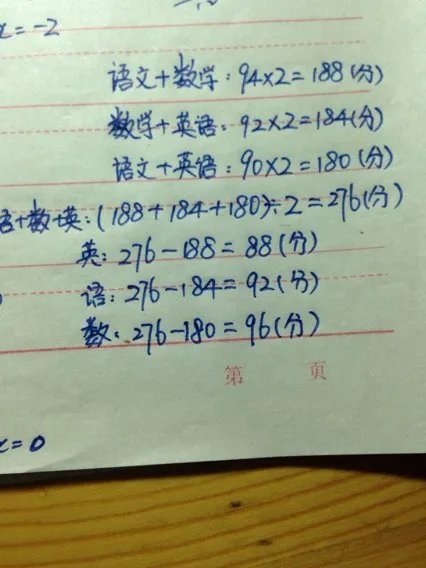 x=-2
语文+数学:94×2=188(分)
数学+英语:92×2=184(分)
语文+英语:90×2=180(分)
语+数+英:(188+184+180)÷2=276(分)
英:276-188=88(分)
语:276-184=92(分)
数:276-180=96(分)
第 页
x=0